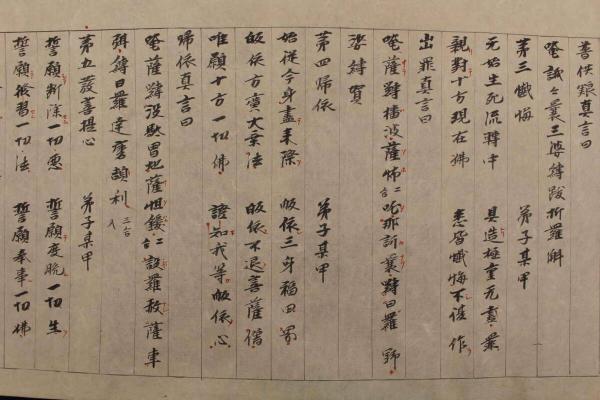 善供狠真言曰
唵誐々曩三婆縛跋折羅斛
第三懺悔　弟子某甲
无始生死流轉中　具造極重无盡業
親對十方現在佛　悉皆懺悔不復作
出罪真言曰
唵薩嚩播波薩怖二合吒那訶曩嚩日羅野
娑縛賀
第四歸依　弟子某甲
始從今身盡未際　皈依三身福田
皈依方廣大乗法　皈依不退菩薩僧
唯願十方一切佛　證知我等皈依心
歸依真言曰
唵薩嚩没馱冒地薩怛鑁二合設羅赧薩車
弭縛日羅達磨頡利二合
第五發菩提心　弟子某甲
誓願断除一切悪　誓願度脱一切生
誓願修習一切法　誓願奉事一切佛